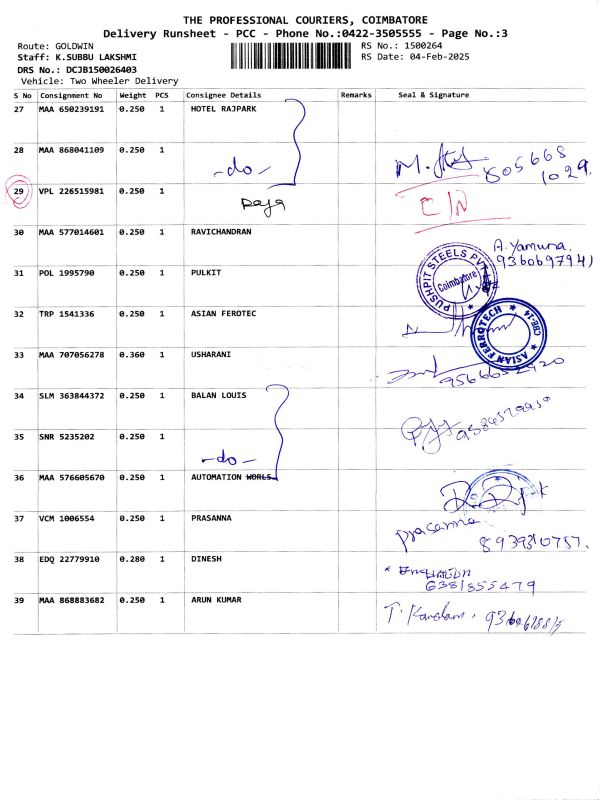 THE PROFESSIONAL COURIERS, COIMBATORE
Delivery Runsheet - PCC - Phone No.:0422-3505555 - Page No.:3
Route: GOLDWIN RS No.: 1500264
Staff: K.SUBBU LAKSHMI RS Date: 04-Feb-2025
DRS No.: DCJB150026403
Vehicle: Two Wheeler Delivery
S No Consignment No Weight PCS Consignee Details Remarks Seal & Signature
27 MAA 650239191 0.250 1 HOTEL RAJPARK
28 MAA 868041109 0.250 1 -do- 805668
1029.
29 VPL 226515981 0.250 1 Raja
30 MAA 577014601 0.250 1 RAVICHANDRAN A. Yamuna.
9360697941
31 POL 1995790 0.250 1 PULKIT PUSHPIT STEELS PVT Coimbatore
32 TRP 1541336 0.250 1 ASIAN FEROTEC ASIAN FERROTECH CBE-14
33 MAA 707056278 0.360 1 USHARANI
34 SLM 363844372 0.250 1 BALAN LOUIS
35 SNR 5235202 0.250 1 -do-
36 MAA 576605670 0.250 1 AUTOMATION WORLS
37 VCM 1006554 0.250 1 PRASANNA prasanna.
8939310757.
38 EDQ 22779910 0.280 1 DINESH
6381855479
39 MAA 868883682 0.250 1 ARUN KUMAR